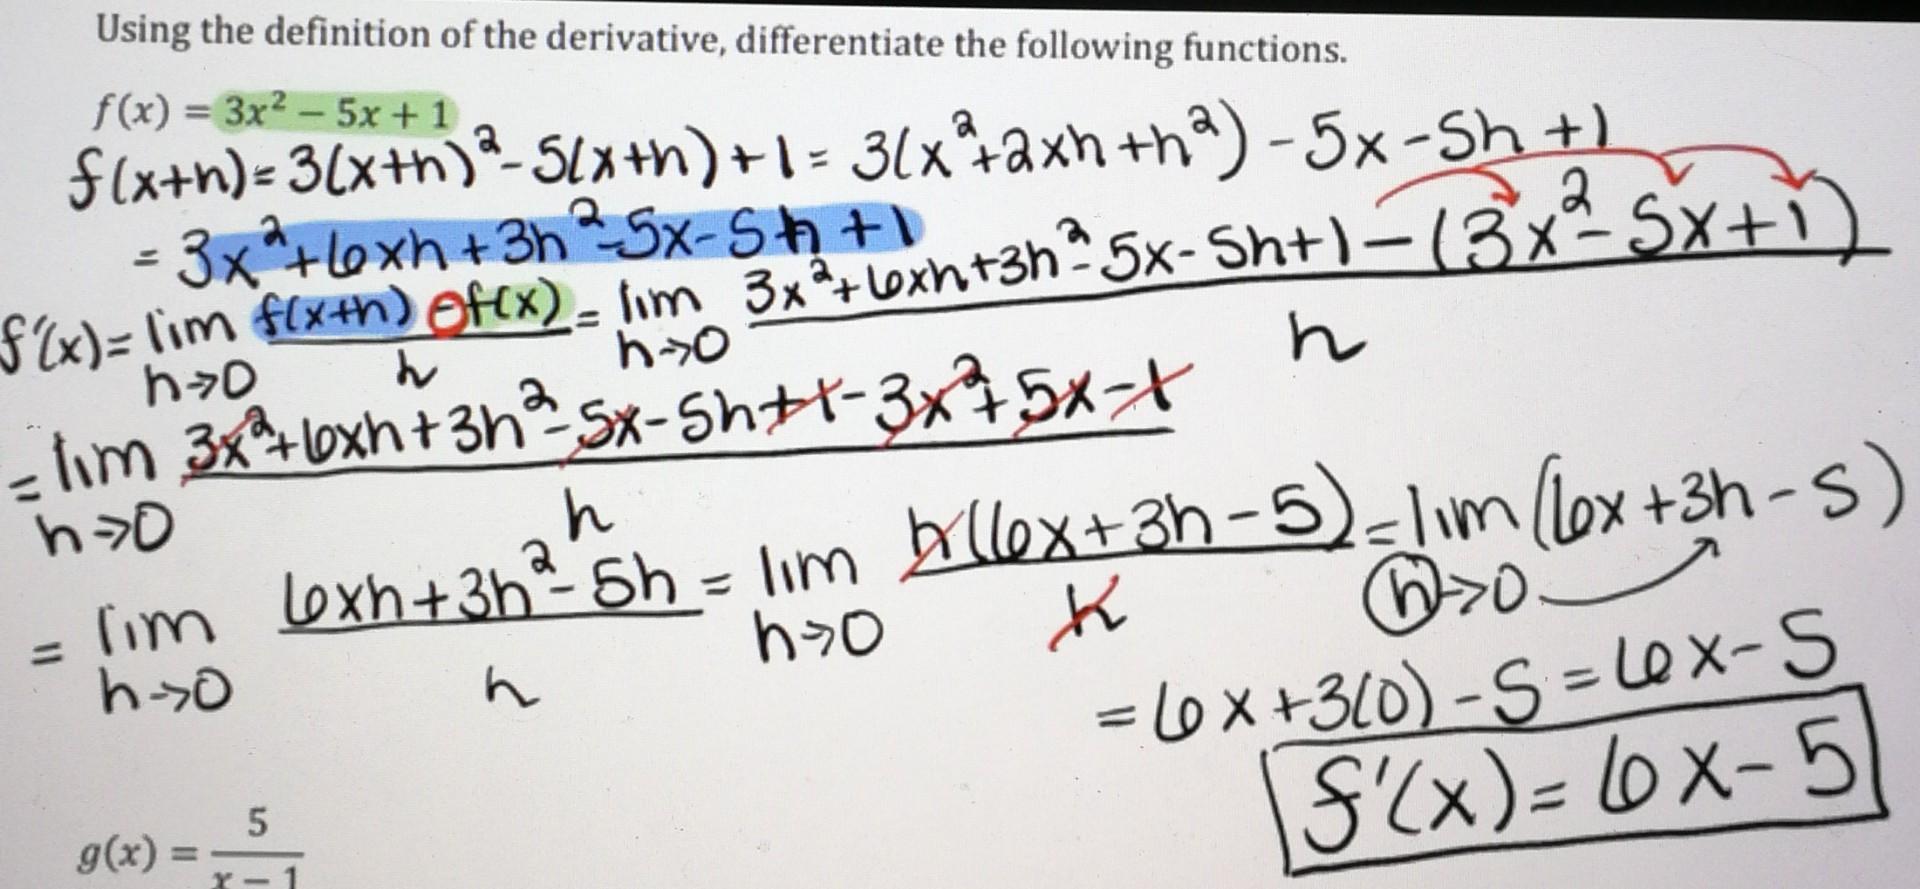 Using the definition of the derivative, differentiate the following functions.
f(x) = 3x² − 5x + 1
f(x+h) = 3(x+h)² - 5(x+h) + 1 = 3(x²+2xh+h²) - 5x - 5h + 1
= 3x² + 6xh + 3h² - 5x - 5h + 1
f'(x) = lim h→0 f(x+h) - f(x) / h = lim h→0 3x² + 6xh + 3h² - 5x - 5h + 1 - (3x² - 5x + 1) / h
= lim h→0 3x² + 6xh + 3h² - 5x - 5h + 1 - 3x² + 5x - 1 / h
= lim h→0 6xh + 3h² - 5h / h = lim h→0 h(6x + 3h - 5) / h = lim h→0 (6x + 3h - 5)
= 6x + 3(0) - 5 = 6x - 5
f'(x) = 6x - 5
g(x) = 5 / x − 1